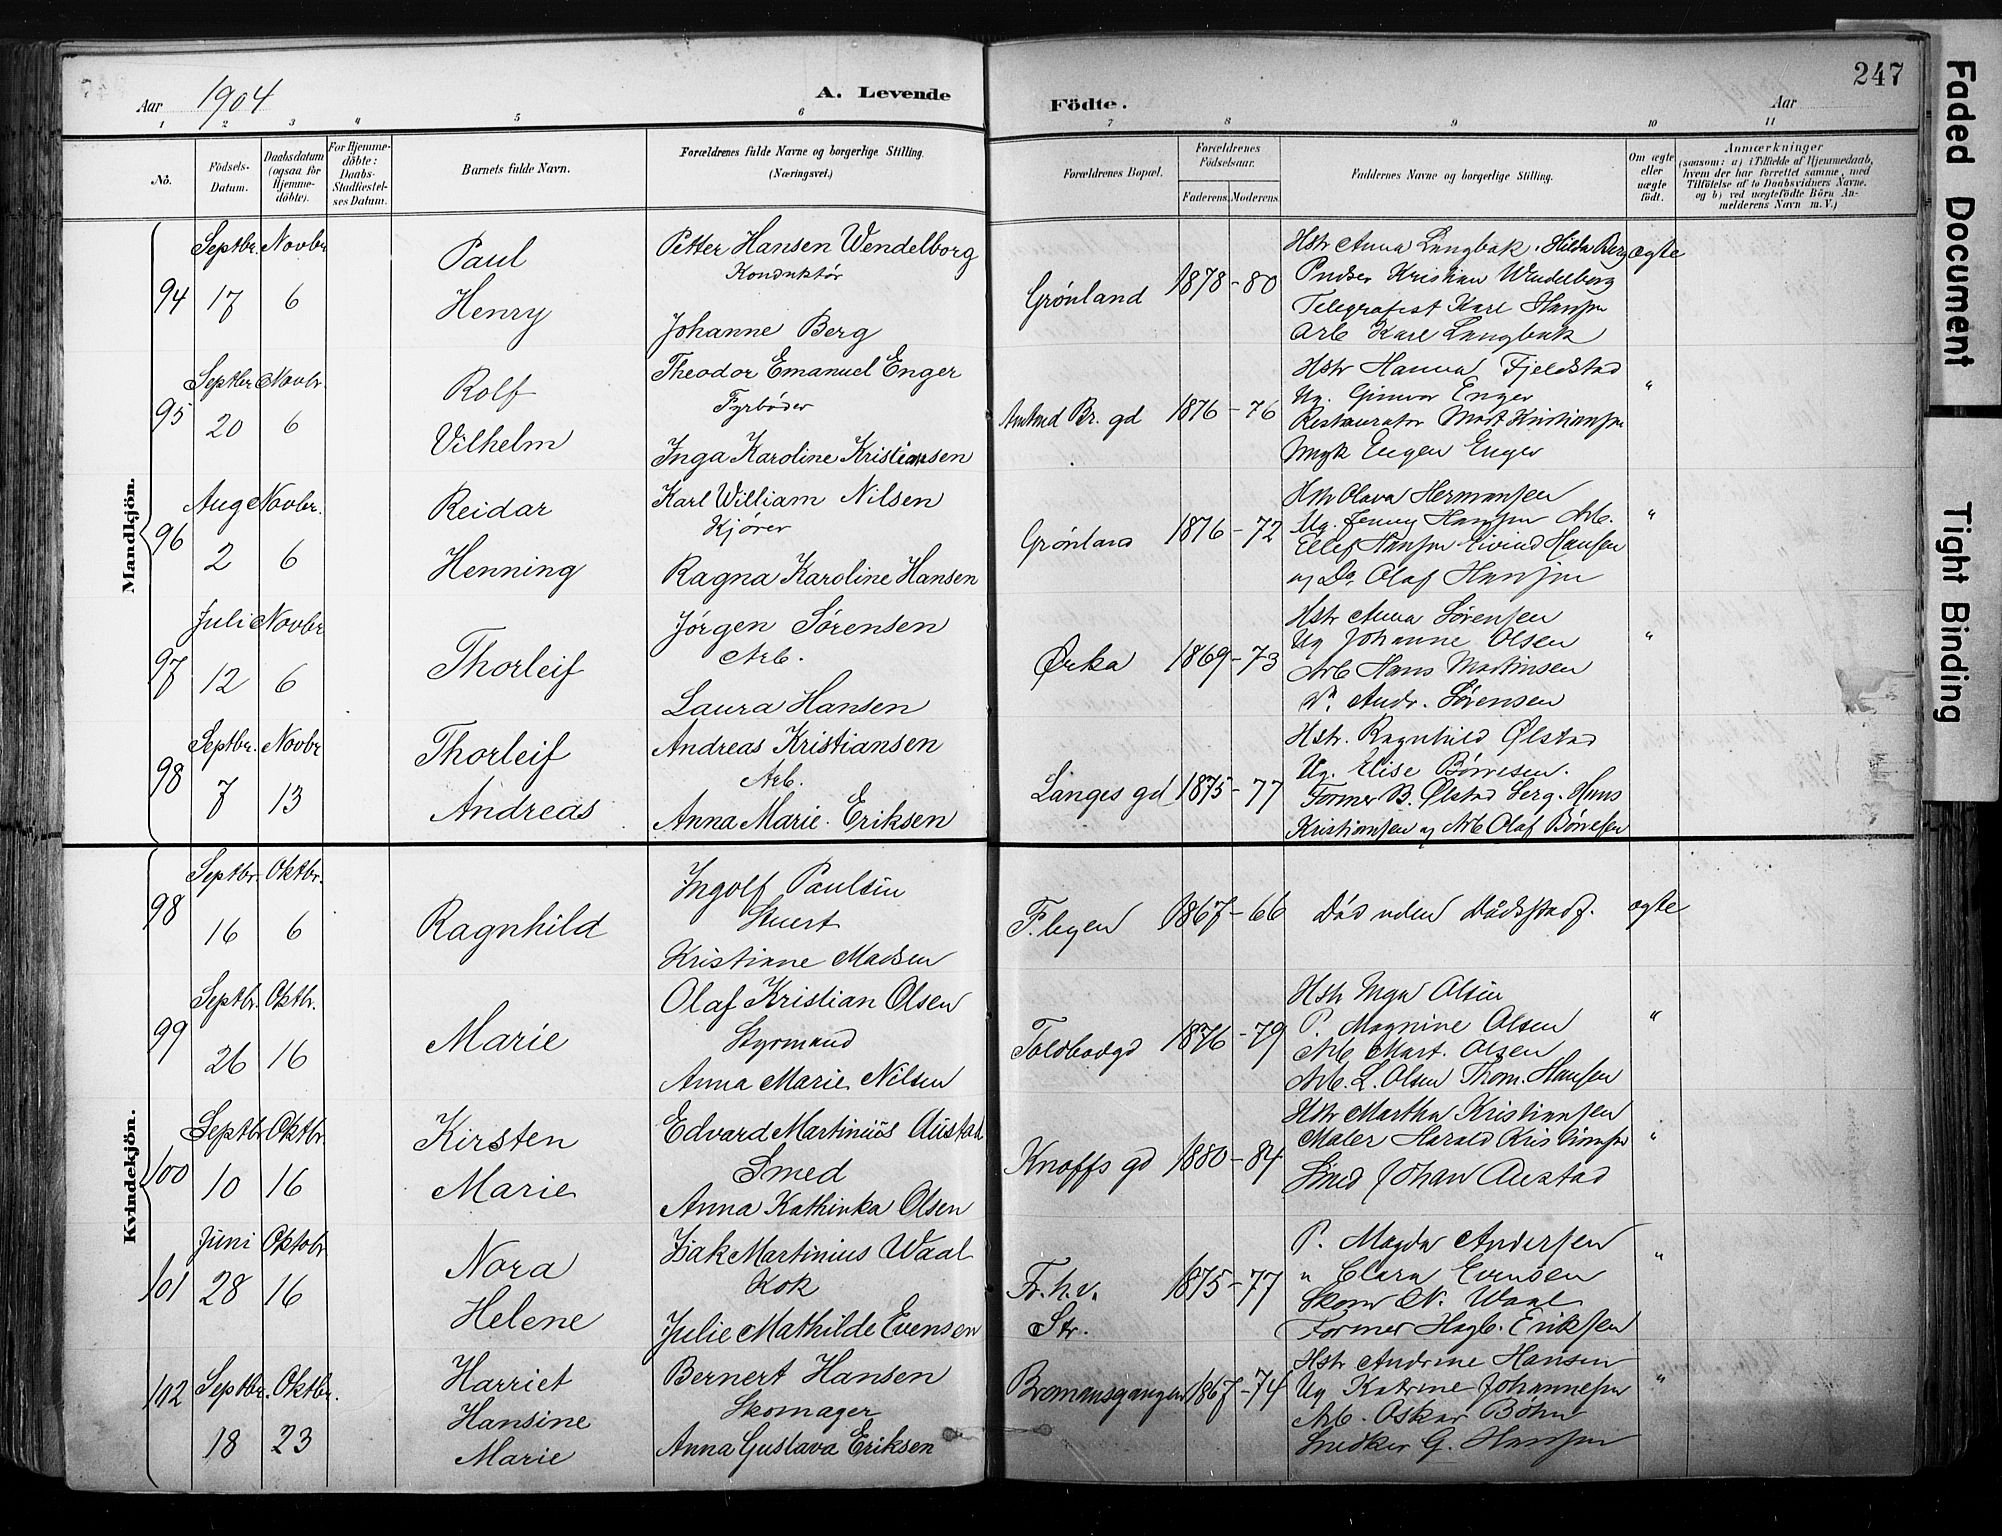 Aar 1904
A. Levende
Födte.
Aar
247
1 2 3 4 5 6 7 8 9 10 11
No.
Födsels-Datum.
Daabsdatum (ogsaa for Hjemme-döbte).
For Hjemme-döbte: Daabs-Stadfæstel-ses Datum.
Barnets fulde Navn.
Forældrenes fulde Navne og borgerlige Stilling. (Næringsvei.)
Forældrenes Bopæl.
Forældrenes Födselsaar.
Faderens. Moderens.
Faddernes Navne og borgerlige Stilling.
Om ægte eller uægte födt.
Anmærkninger
(saasom: a) i Tilfælde af Hjemmedaab,
hvem der har forrettet samme, med
Tilföielse af to Daabsvidners Navne,
og b) ved uægtefödte Börn An-
melderens Navn m. V.)
Mandkjön.
94
Septbr. 17
Novbr. 6
Paul
Henry
Petter Hansen Wendelborg
Konduktör
Johanne Berg
Grønland
1878 - 80
Hstr Anna Langbak. Hilda Berg
Pudser Kristian Wendelborg
Telegrafist Karl Hansen
Arb Karl Langbak
ægte
95
Septbr 20
Novbr. 6
Rolf
Vilhelm
Theodor Emanuel Enger
Fyrbøder
Inga Karoline Kristiansen
Br. gd
1876 - 76
Hstr Hanna Fjeldstad
Ug. Gunvor Enger
Restaurator Mart Kristiansen
Eugen Enger
"
96
Aug 2
Novbr. 6
Reidar
Henning
Karl William Nilsen
Kjører
Ragna Karoline Hansen
Grønland
1876 - 72
Hstr Olava Hermansen
Ug. Jenny Hansen Arb.
Ellef Hansen Eivind Hansen
og Do. Olaf Hansen
"
97
Juli 12
Novbr 6
Thorleif
Jørgen Sørensen
Arb.
Laura Hansen
Ørka
1869 - 73
Hstr Anna Sørensen
Ug Johanne Olsen
Arb Hans Martinsen
Andr. Sørensen
"
98
Septbr. 7
Novbr 13
Thorleif
Andreas
Andreas Kristiansen
Arb.
Anna Marie Eriksen
Langes gd
1875 - 77
Hstr. Ragnhild Ølstad
Ug. Elise Børresen.
Former B. Ølstad Serg. Hans
Kristiansen og Arb Olaf Børresen
Kvindekjön.
98
Septbr. 16
Oktbr. 6
Ragnhild
Ingolf Paulsen
Stuert
Kristiane Madsen
F. byen
1867 - 66
Død uden Dådsstadf.
ægte
99
Septbr. 26
Oktbr. 16
Marie
Olaf Kristian Olsen
Styrmand
Anna Marie Nilsen
Toldbodgd
1876 - 79
Hstr Inga Olsen
P. Magnine Olsen
Arb Mart. Olsen
Arb. L. Olsen Thom. Hansen
"
100
Septbr 10
Oktbr. 16
Kirsten
Marie
Edvard Martinius Austad
Smed
Anna Kathinka Olsen
Knoffs gd
1880 - 84
Hstr Martha Kristiansen
Maler Harald Kristiansen
Smed Johan Austad
"
101
Juni 28
Oktobr 16
Nora
Helene
Isak Martinius Waal
Kok
Julie Mathilde Evensen
Fr. h. v.
Str.
1875 - 77
P. Magda Andersen
" Clara Evensen
Skom N. Waal
Former Hagb. Eriksen
"
102
Septbr. 18
Oktbr. 23
Harriet
Hansine
Marie
Bernert Hansen
Skomager
Anna Gustava Eriksen
Bremansgangen
1867 - 74
Hstr Andrine Hansen
Ug Katrine Johannesen
Arb. Oskar Böhn
Snedker G. Hansen
"
Faded Document
Tight Binding